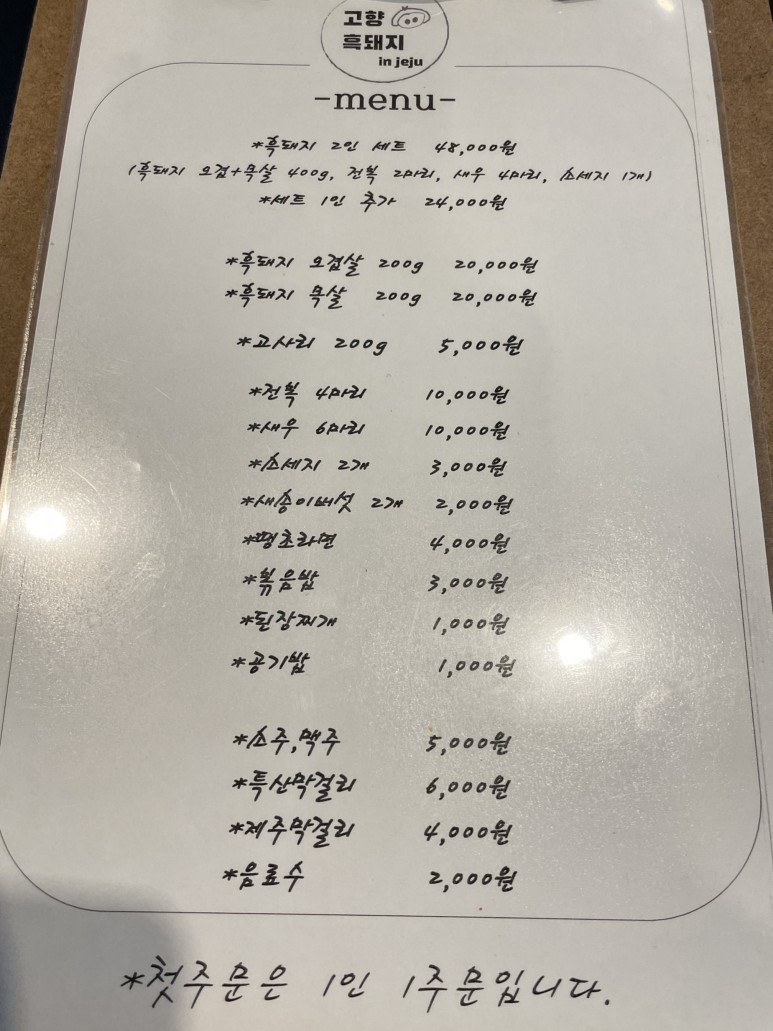 고향
흑돼지
in jeju
-menu-
*흑돼지 2인 세트 48,000원
(흑돼지 오겹+목살 400g, 전복 2마리, 새우 4마리, 소세지 1개)
*세트 1인 추가 24,000원
*흑돼지 오겹살 200g 20,000원
*흑돼지 목살 200g 20,000원
*고사리 200g 5,000원
*전복 4마리 10,000원
*새우 6마리 10,000원
*소세지 2개 3,000원
*새송이버섯 2개 2,000원
*땡초라면 4,000원
*볶음밥 3,000원
*된장찌개 1,000원
*공기밥 1,000원
*소주,맥주 5,000원
*특산막걸리 6,000원
*제주막걸리 4,000원
*음료수 2,000원
*첫주문은 1인 1주문입니다.